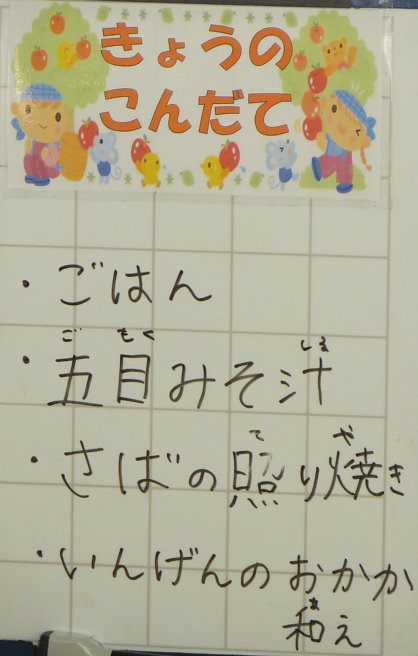 きょうの
こんだて
・ごはん
ご もく しる
・五目みそ汁
て や
・さばの照り焼き
・いんげんのおかか
あ
和え